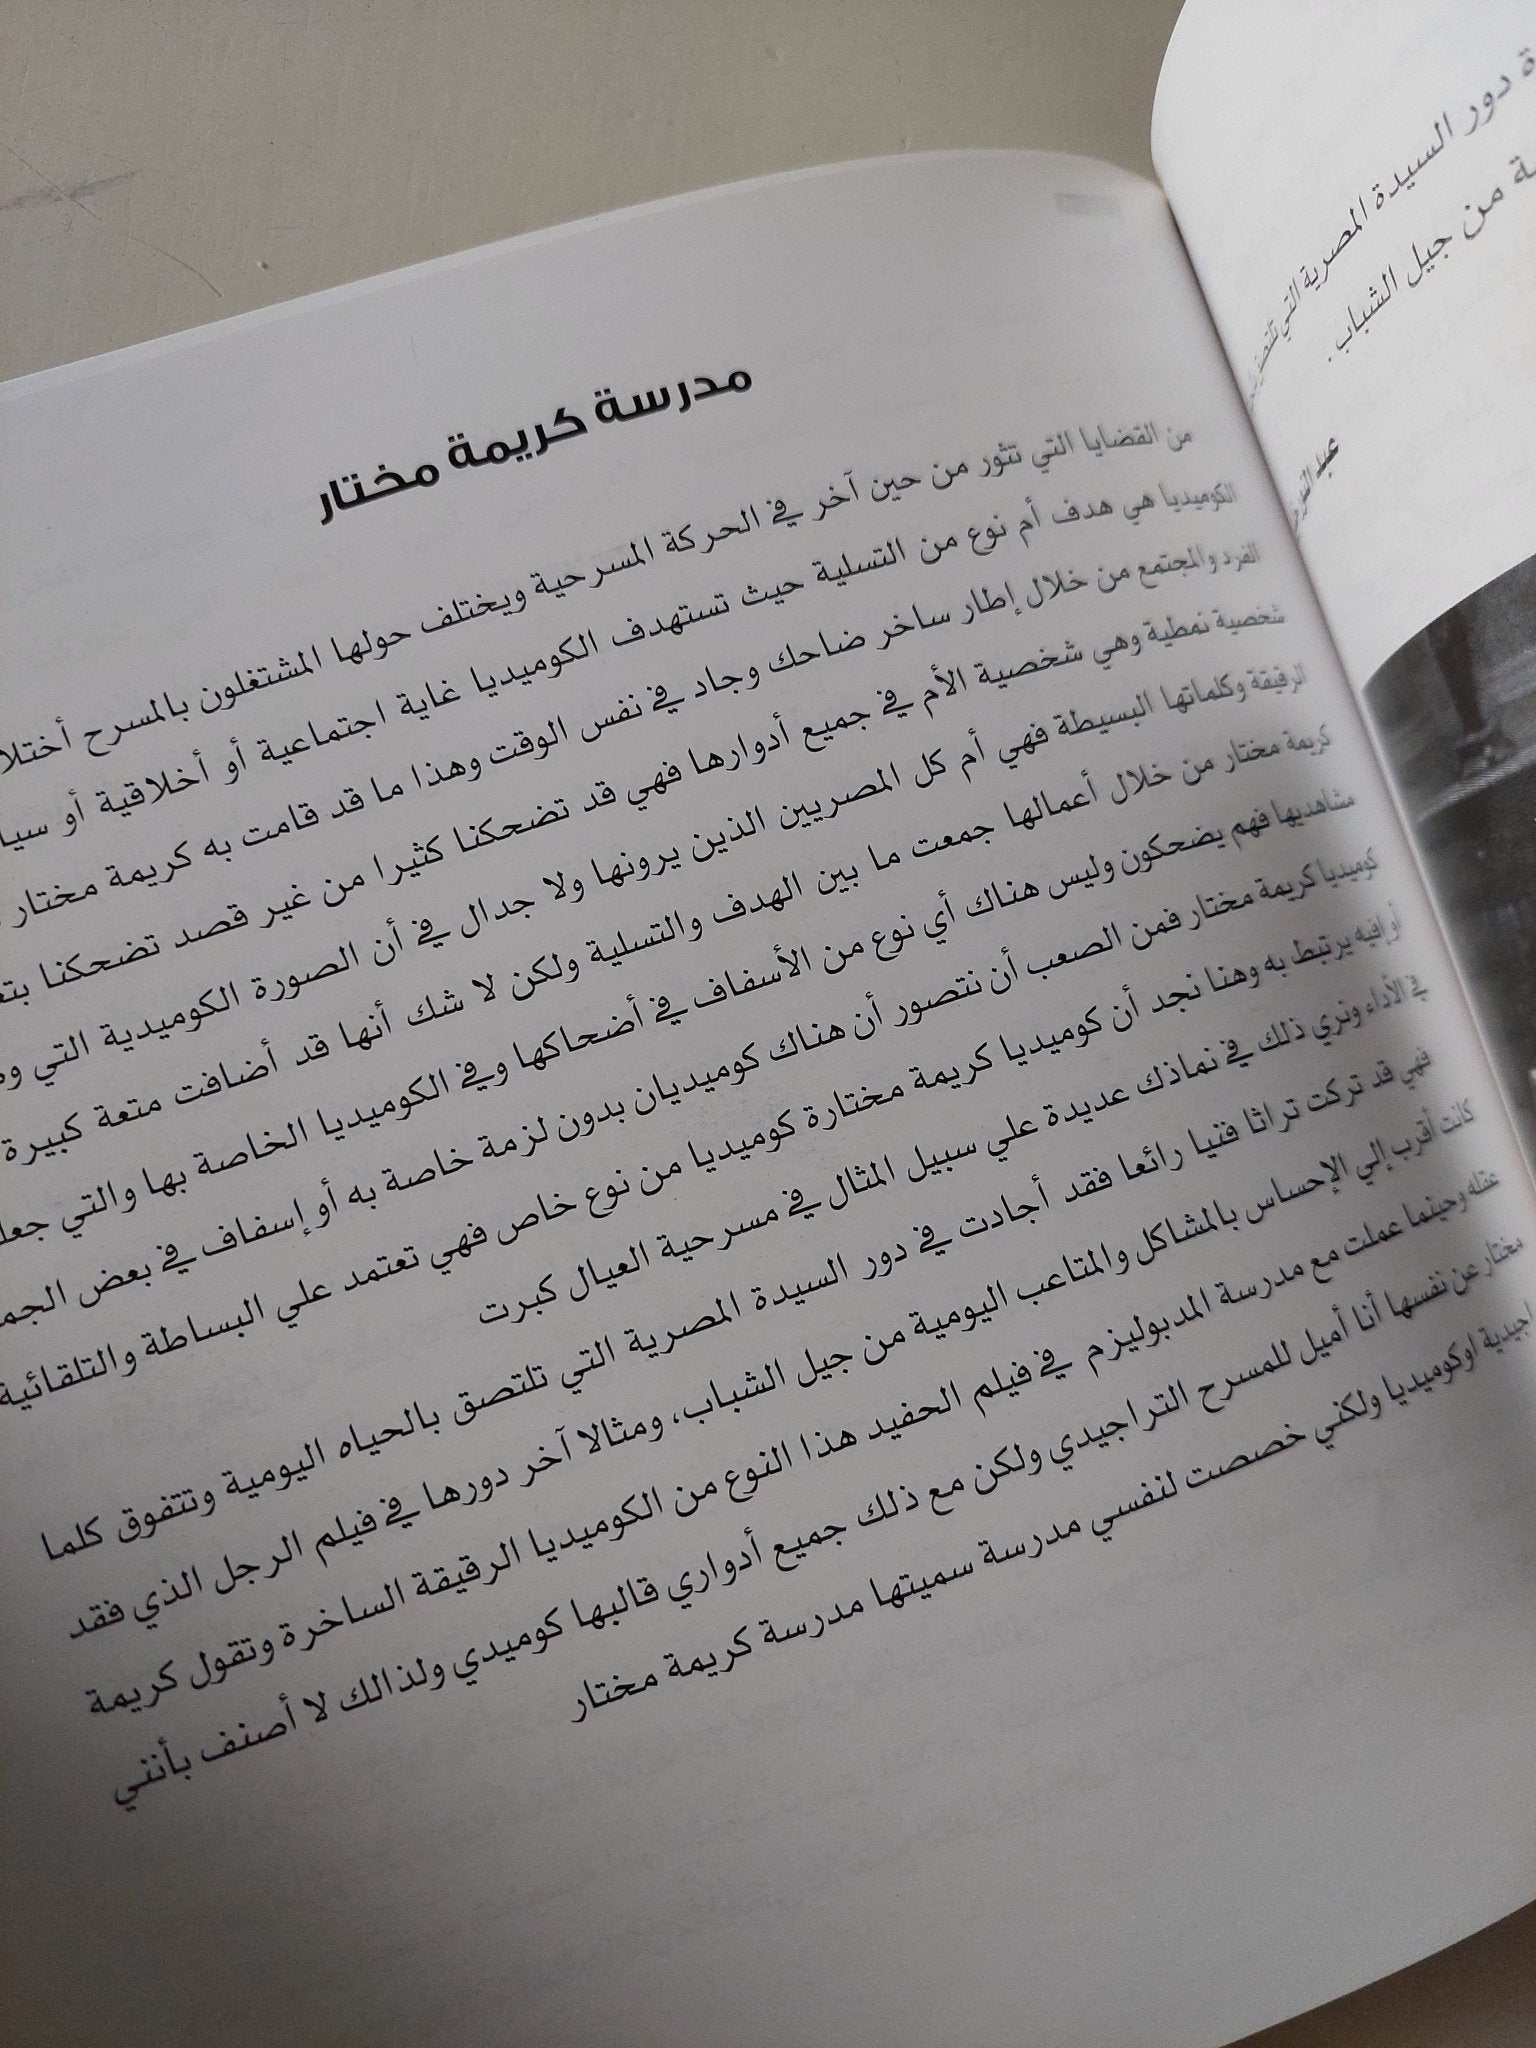 ة دور السيدة المصرية التي تلتصق
ة من جيل الشباب .
مدرسة كريمة مختار
من القضايا التي تثور من حين آخر في الحركة المسرحية ويختلف حولها المشتغلون بالمسرح أختلا
الكوميديا هي هدف أم نوع من التسلية حيث تستهدف الكوميديا غاية اجتماعية أو أخلاقية أو سيا
الفرد والمجتمع من خلال إطار ساخر ضاحك وجاد في نفس الوقت وهذا ما قد قامت به كريمة مختار
شخصية نمطية وهي شخصية الأم في جميع أدوارها فهي قد تضحكنا كثيرا من غير قصد تضحكنا بتع
الرقيقة وكلماتها البسيطة فهي أم كل المصريين الذين يرونها ولا جدال في أن الصورة الكوميدية التي
كريمة مختار من خلال أعمالها جمعت ما بين الهدف والتسلية ولكن لا شك أنها قد أضافت متعة كبيرة
مشاهديها فهم يضحكون وليس هناك أي نوع من الأسفاف في أضحاكها وفي الكوميديا الخاصة بها والتي جعل
كوميديا كريمة مختار فمن الصعب أن نتصور أن هناك كوميديان بدون لزمة خاصة به أو إسفاف في بعض الجم
أو إفيه يرتبط به وهنا نجد أن كوميديا كريمة مختارة كوميديا من نوع خاص فهي تعتمد علي البساطة والتلقائية
في الأداء ونري ذلك في نماذك عديدة علي سبيل المثال في مسرحية العيال كبرت
فهي قد تركت تراثا فنيا رائعا فقد أجادت في دور السيدة المصرية التي تلتصق بالحياه اليومية وتتفوق كلما
كانت أقرب إلي الإحساس بالمشاكل والمتاعب اليومية من جيل الشباب، ومثالا آخر دورها في فيلم الرجل الذي فقد
عقله وحينما عملت مع مدرسة المدبوليزم في فيلم الحفيد هذا النوع من الكوميديا الرقيقة الساخرة وتقول كريمة
مختار عن نفسها أنا أميل للمسرح التراجيدي ولكن مع ذلك جميع أدواري قالبها كوميدي ولذالك لا أصنف بأنني
اجيدية اوكوميديا ولكني خصصت لنفسي مدرسة سميتها مدرسة كريمة مختار